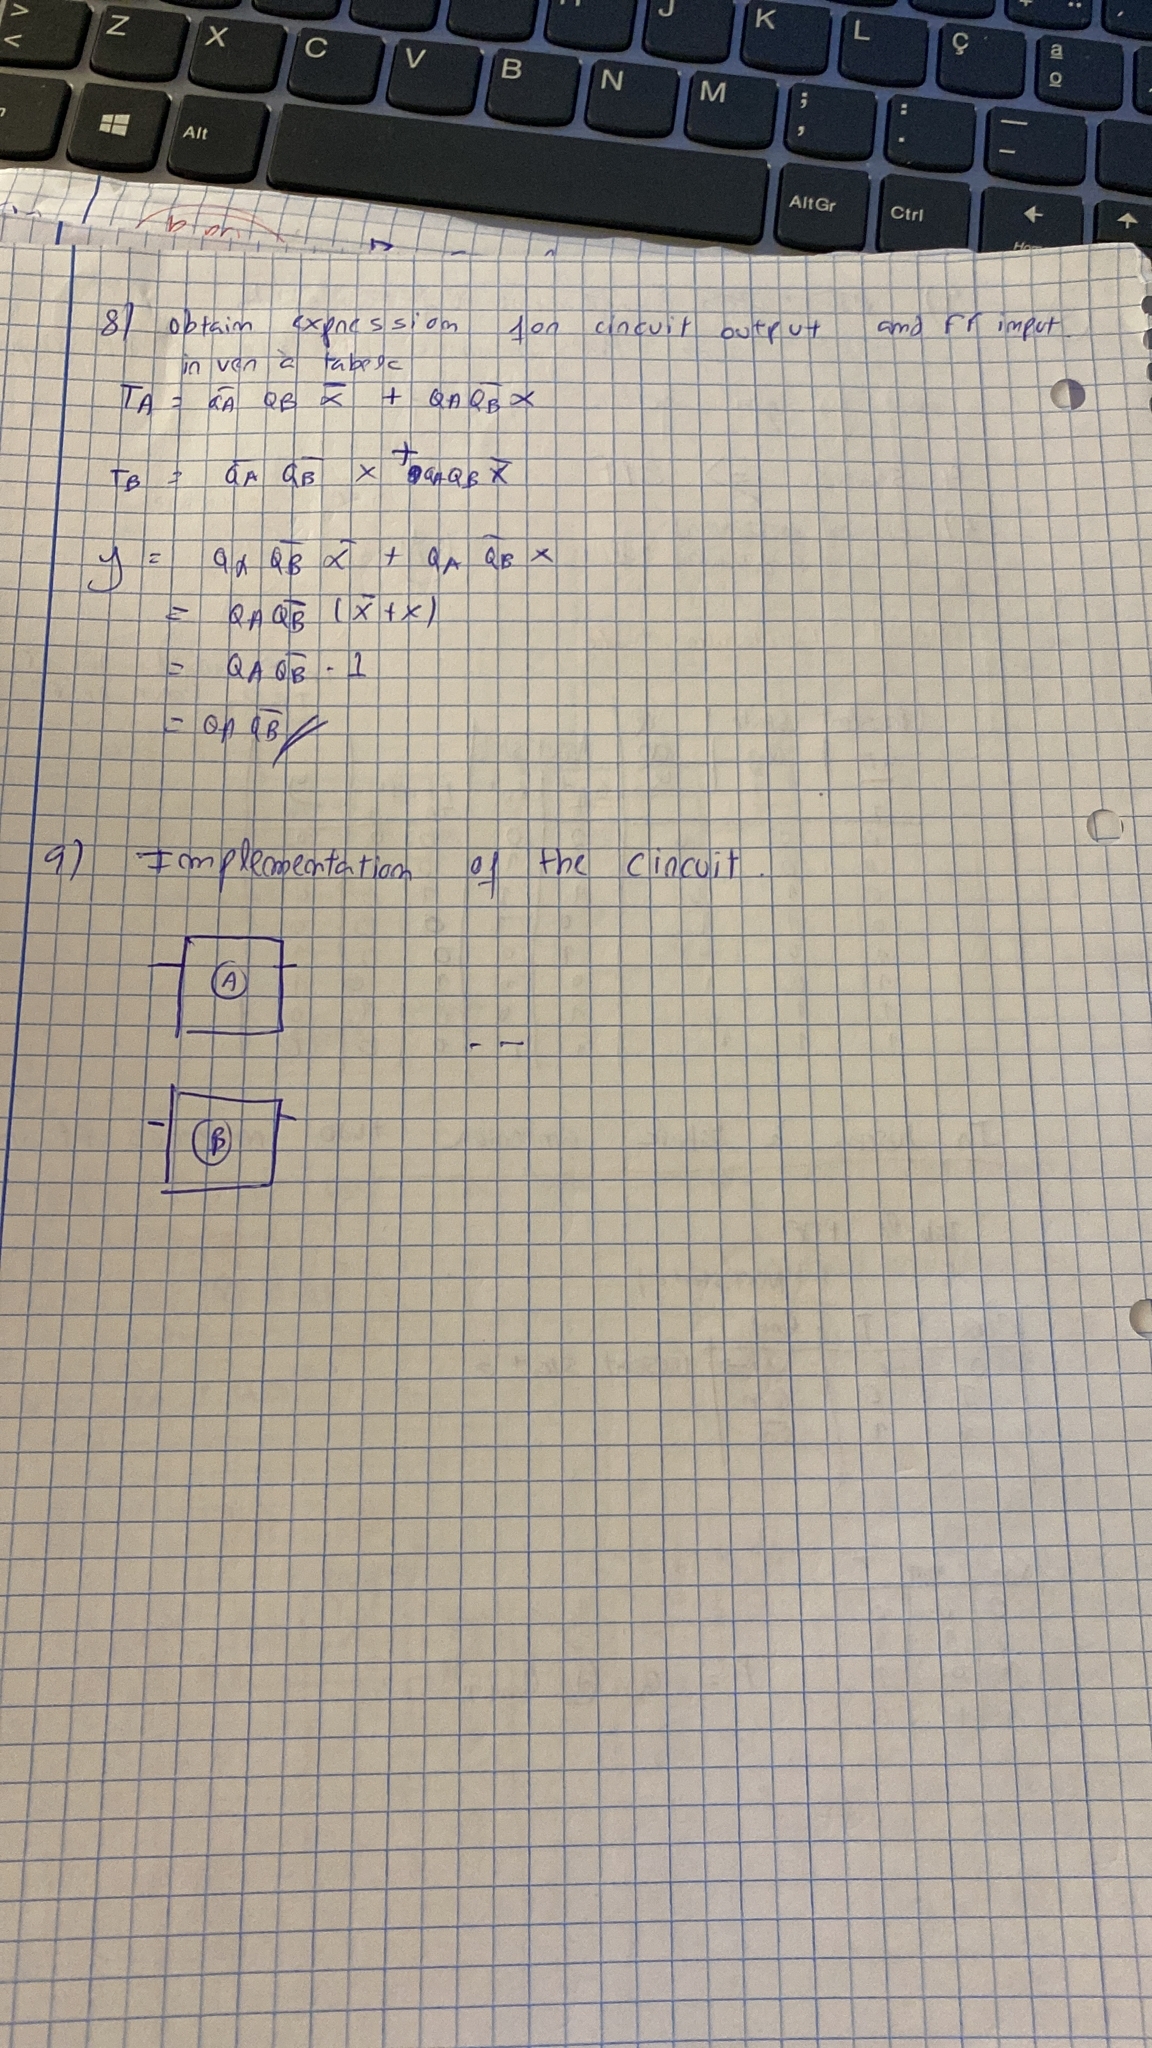 > < Z X C V B N M J K L Ç ª º
Alt ; , : . _ -
AltGr Ctrl ← ↑
8) obtain expression for circuit output and FF input
T̅A̅ = Q̅A̅ QB x̅ + QA Q̅B̅ x
TB = Q̅A̅ Q̅B̅ x + QA QB x̅
y = QA Q̅B̅ x̅ + QA Q̅B̅ x
= QA Q̅B̅ (x̅ + x)
= QA Q̅B̅ . 1
= QA Q̅B̅ //
9) Implementation of the circuit.
A
- -
B